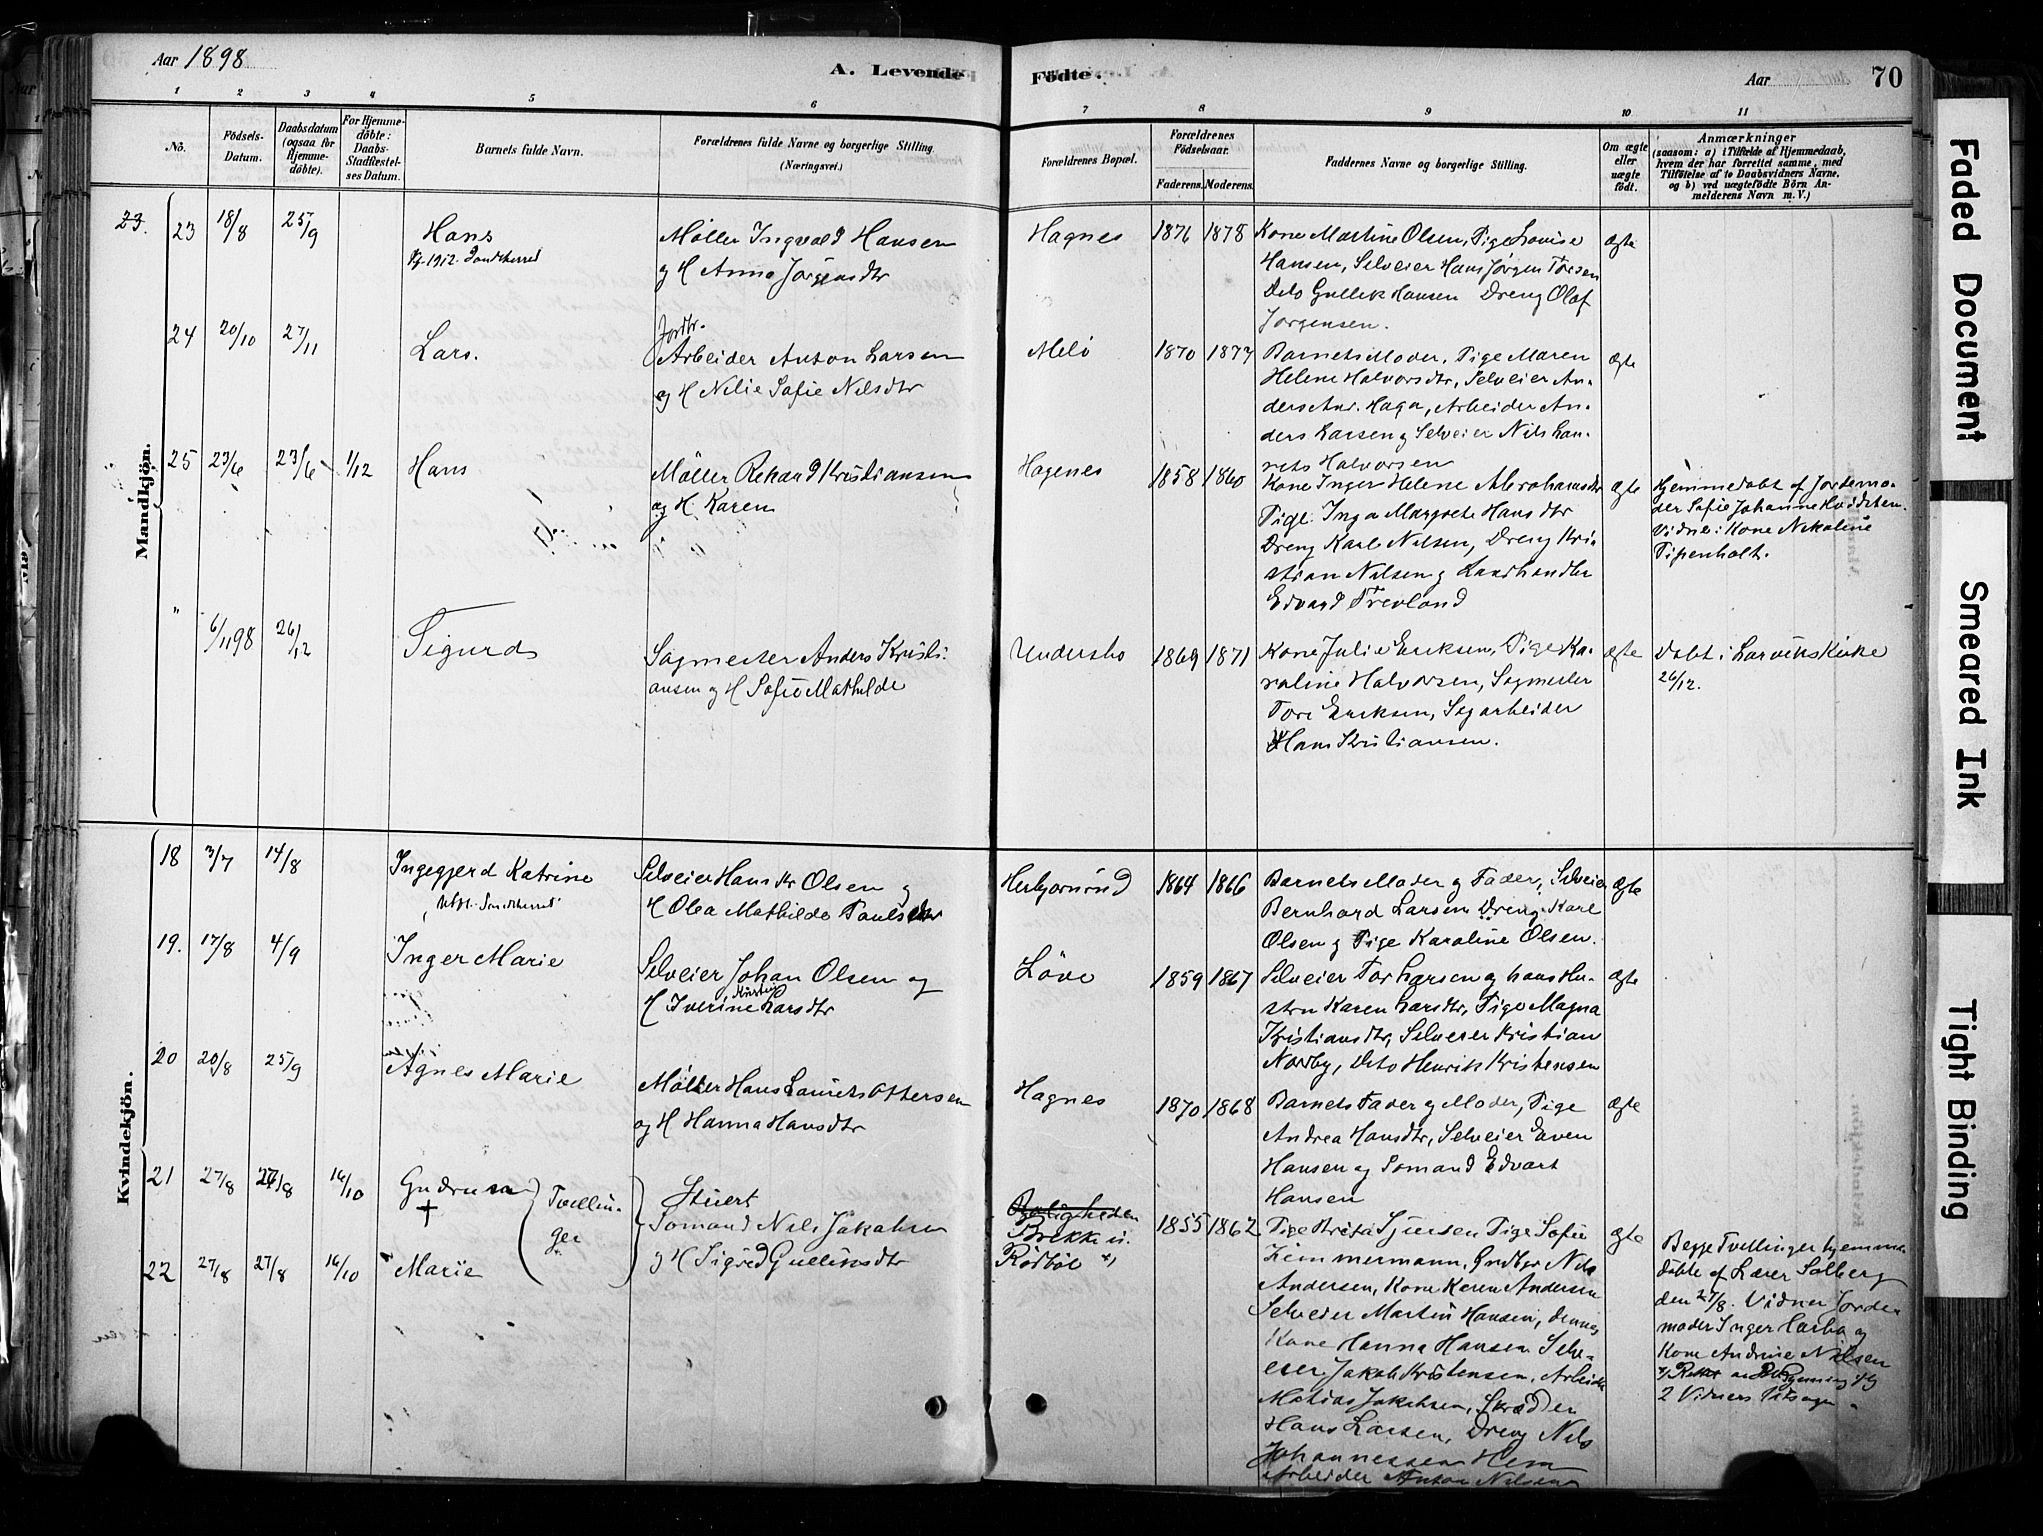 Aar 1898
A. Levende Fødte.
Aar
70
1 2 3 4 5 6 7 8 9 10 11
No.
Fødsels-Datum.
Daabsdatum (ogsaa for Hjemmedøbte).
For Hjemmedøbte: Daabs-Stadfæstelses Datum.
Barnets fulde Navn.
Forældrenes fulde Navne og borgerlige Stilling. (Næringsvei.)
Forældrenes Bopæl.
Forældrenes Fødselsaar.
Faderens. Moderens.
Faddernes Navne og borgerlige Stilling.
Om ægte eller uægte født.
Anmærkninger
(saasom: a) i Tilfælde af Hjemmedaab,
hvem der har forrettet samme, med
Tilføielse af to Daabsvidners Navne,
og b) ved uægtefødte Børn Anmelderens Navn m. V.)
Mandkjøn.
23. 23 18/8 25/9 Hans
Møller Ingvald Hansen
og H Anna Jørgensdtr
Hagnes 1876 1878
Kone Martine Olsen, Pige Lovise
Hansen, Selveier Hans Jørgen Torsen
Dito Gullik Hansen Dreng Olaf
Jørgensen.
ægte
24 20/10 27/11 Lars.
Jordbr.
Arbeider Anton Larsen
og H Nilie Sofie Nilsdtr
Melø 1870 1877
Barnets Moder, Pige Maren
Helene Halvorsdtr, Selveier An-
ders Anr. Haga, Arbeider An-
ders Larsen og Selveier Nils Lau-
rits Halvorsen
ægte
25 23/6 23/6 1/12 Hans
Møller Rikard Kristiansen
og H Karen
Hagenes 1858 1860
Kone Inger Helene Abrahamsdtr
Pige Inga Margrete Hansdtr
Dreng Karl Nilsen, Dreng Kri-
stian Nilsen og Landhandler
Edvard Trevland
ægte
Hjemmedøbt af Jordemo-
der Sofie Johanne
Vidne: Kone Nikoline
Pipenholt.
" 6/11 98 26/12 Sigurd
Sagmester Anders Kristi-
ansen og H Sofie Mathilde
Undersbo 1869 1871
Kone Julie Eriksen, Pige Ka-
roline Halvorsen, Sagmester
Tore Eriksen, Sagarbeider
Hans Kristiansen.
ægte
Døbt i Larviks Kirke
26/12.
Kvindekjøn.
18 3/7 14/8 Ingegjerd Katrine
Selveier Hans Kr Olsen og
H Olea Mathilde Paulsdtr
1864 1866
Barnets Moder og Fader, Selveier
Bernhard Larsen Dreng Karl
Olsen og Pige Karoline Olsen.
ægte
19. 17/8 4/9 Inger Marie
Selveier Johan Olsen og
H Iverine Larsdtr
Løve 1859 1867
Selveier Tor Larsen og hans Hu-
stru Karen Larsdtr, Pige Magna
Kristiansdtr, Selveier Kristian
Nordby, Dito Henrik Kristensen
ægte
20 20/8 25/9 Agnes Marie
Møller Hans Laurits Ottersen
og H Hanna Hansdtr
Hagnes 1870 1868
Barnets Fader og Moder, Pige
Andrea Hansdtr, Selveier Even
Hansen og Sømand Edvart
Hansen
ægte
21 27/8 27/8 16/10 Gudrun
Tvillin-
ger
22 27/8 27/8 16/10 Marie
Stuert
Sømand Nils Jakobsen
og H Sigrid Gullinsdtr
Brekke u.
Rødbøl x)
1855 1862
Pige Krista Sjursen Pige Sofie
Zimmermann, Gudbr Nils
Andersen, Kone Karen Andersen
Selveier Martin Hansen, dennes
Kone Hanna Hansen Selv-
eier Jakob Kristensen, Arbeider
Matias Jakobsen, Skrædder
Hans Larsen, Dreng Nils
Johannessen Hem
Arbeider Anton Nilsen
ægte
Begge Tvillinger hjemme-
døbte af Lærer Solberg
den 27/8. Vidner Jorde-
moder Inger Carba og
Kone Andrine Nilsen
2 Vidners
Faded Document
Smeared Ink
Tight Binding